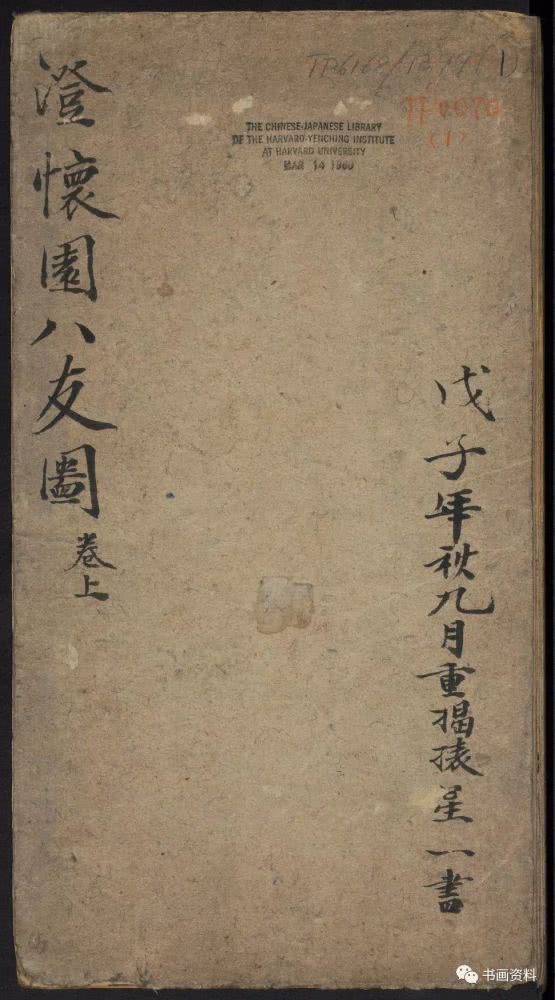 澄懷園八友圖
卷上
戊子年秋九月重揭裱星一書
THE CHINESE-JAPANESE LIBRARY
OF THE HARVARD-YENCHING INSTITUTE
AT HARVARD UNIVERSITY
MAR 14 1960
(1)
(1)
书画资料